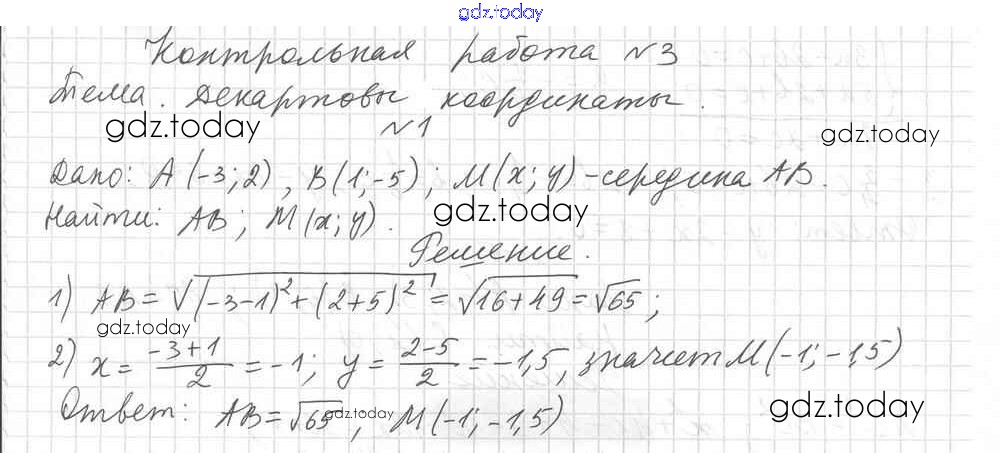 gdz.today
Контрольная работа №3
Тема. Декартовы координаты.
gdz.today №1 gdz.today
Дано: A(-3; 2), B(1; -5); M(x; y) - середина AB.
Найти: AB; M(x; y). gdz.today
Решение.
1) AB = √((-3-1)² + (2+5)²) = √(16+49) = √65;
gdz.today
2) x = (-3+1)/2 = -1; y = (2-5)/2 = -1,5, значит M(-1; -1,5)
Ответ: AB = √65, M(-1; -1,5)
gdz.today gdz.today